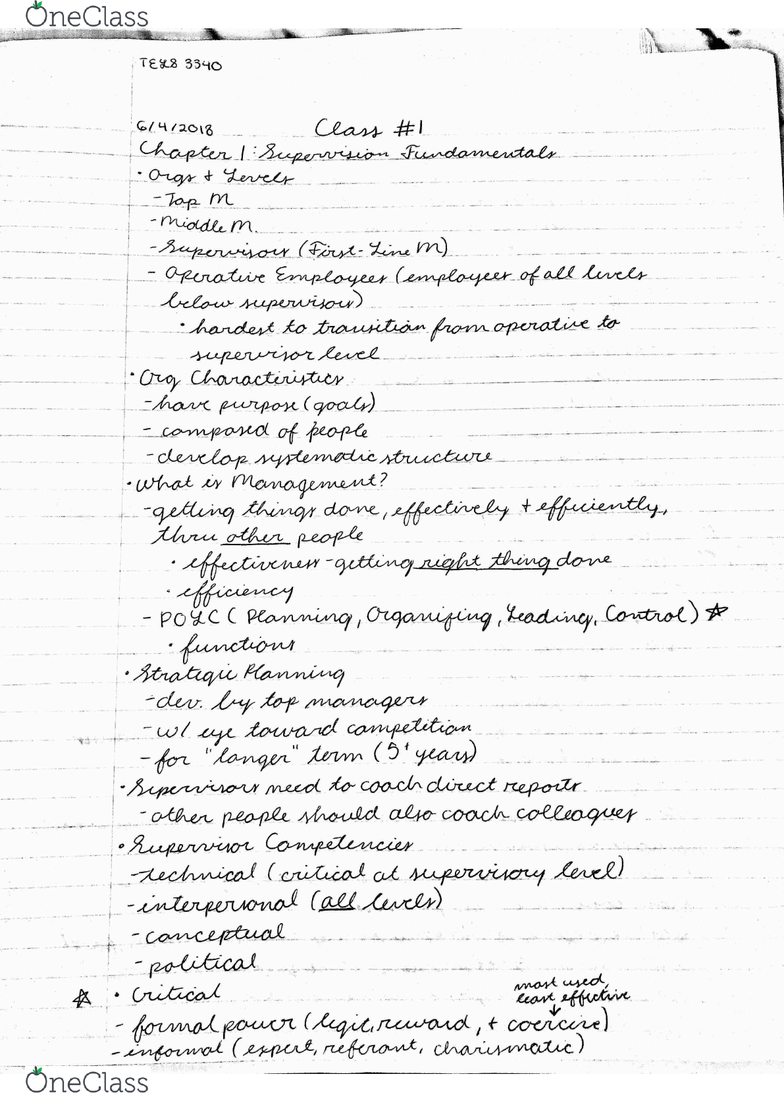 OneClass
TELS 3340
6/4/2018 Class #1
Chapter 1: Supervision Fundamentals
• Orgs + Levels
- Top M
- Middle M.
- Supervisors (First-Line M)
- Operative Employees (employees of all levels
below supervisors)
• hardest to transition from operative to
supervisor level
• Org Characteristics
- have purpose (goals)
- composed of people
- develop systematic structure
• What is Management?
- getting things done, effectively + efficiently,
thru other people
• effectiveness - getting right thing done
• efficiency
- POLC (Planning, Organizing, Leading, Control) ☆
• functions
• Strategic Planning
- dev. by top managers
- w/ eye toward competition
- for "longer" term (5+ years)
• Supervisors need to coach direct reports
- other people should also coach colleagues
• Supervisor Competencies
- technical (critical at supervisory level)
- interpersonal (all levels)
- conceptual
- political
most used,
least effective
☆ • Critical
- formal power (legit, reward, + coercive)
- informal (expert, referant, charismatic)
OneClass